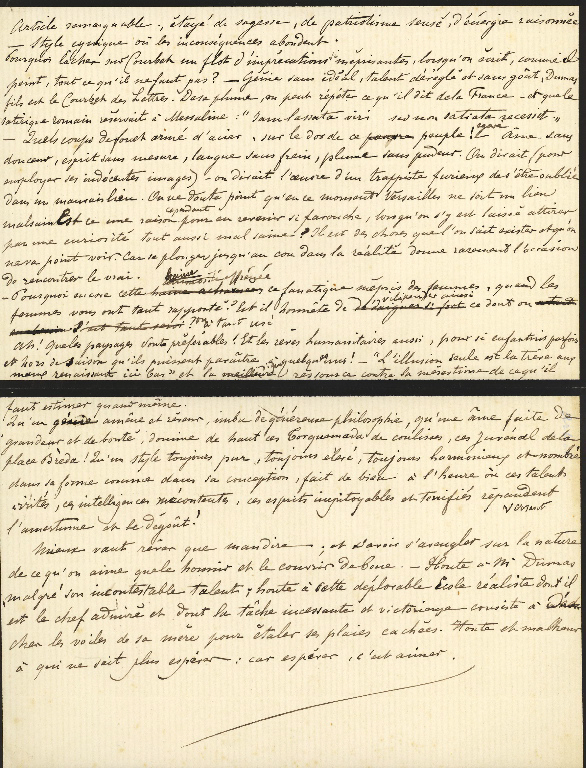 Article remarquable, étayé de sagesse, de patriotisme sensé, d'énergie raisonnée
— Style cynique où les inconséquences abondent.
Pourquoi lâcher sur Courbet un flot d'imprécations méprisantes, lorsqu'on écrit, comme il
peint, tout ce qu'il ne faut pas ? — Génie sans idéal, talent déréglé et sans goût, Dumas
fils est le Courbet des Lettres. De sa plume, on peut répéter ce qu'il dit de la France — et que le
satirique romain réservait à Messaline : "Jam lassata viri sed non satiata recessit"
— Quels coups de fouet armé d'acier, sur le dos de ce pauvre peuple ! Âme sans
douceur, esprit sans mesure, langue sans frein, plume sans pudeur. On dirait (pour
employer ses indécentes images) — on dirait l'œuvre d'un trappiste furieux de s'être oublié
dans un mauvais lieu. On ne doute point qu'en ce moment Versailles ne soit un lieu
malsain. Est ce une raison cependant pour en revenir si farouche, lorsqu'on s'y est laissé attirer
par une curiosité tout aussi malsaine ? Il est des choses que l'on sait exister et qu'on
ne va point voir. Car se plonger jusqu'au cou dans la réalité donne rarement l'occasion
de rencontrer le vrai.
— Pourquoi encore cette effrénée ce fanatique mépris des femmes, quand les
femmes vous ont tant rapporté ? Est il honnête de si fort ce dont on
a tant usé
Ah ! Quels paysages sont préférables ! Et les rêves humanitaires aussi, pour si enfantins parfois
et hors de saison qu'ils puissent paraître à quelques uns ! — "L'illusion seule est la trêve aux
maux renaissant ici bas" et la meilleure ressource contre la mésestime de ce qu'il
faut estimer quand même.
Qu'un génie amène et rêveur, imbu de généreuse philosophie, qu'une âme faite de
grandeur et de bonté, domine de haut ces Torquemada de coulisses, ces Juvénal de la
place Bréda ! Qu'un style toujours pur, toujours élevé, toujours harmonieux et nombré
dans sa forme comme dans sa conception, fait de bien à l'heure où ces talents
irrités, ces intelligences mécontentes, ces esprits impitoyables et répandent
servent
l'amertume et le dégoût !
Mieux vaut rêver que maudire, et savoir s'aveugler sur la nature
de ce qu'on aime que le honnir et le couvrir de boue. — Honte à Mr Dumas
malgré son incontestable talent, honte à cette déplorable École réaliste dont il
est le chef admiré et dont la tâche incessante et victorieuse consiste à
cher les voiles de sa mère pour étaler ses plaies cachées. Honte et malheur
à qui ne sait plus espérer : car espérer, c'est aimer.